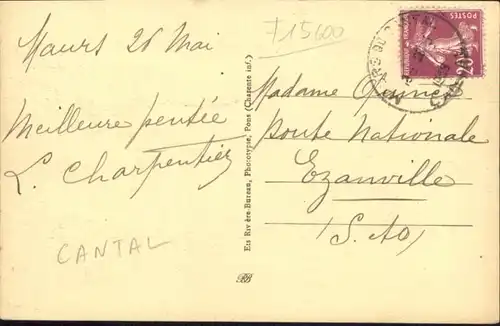 Maurs 26 Mai
Meilleure pensée
L. Charpentier
CANTAL
T15600
Ets Rivière-Bureau, Phototypie, Pons (Charente inf.)
Madame
Route Nationale
Ezanville
(S. & O.)
POSTES
20
RB